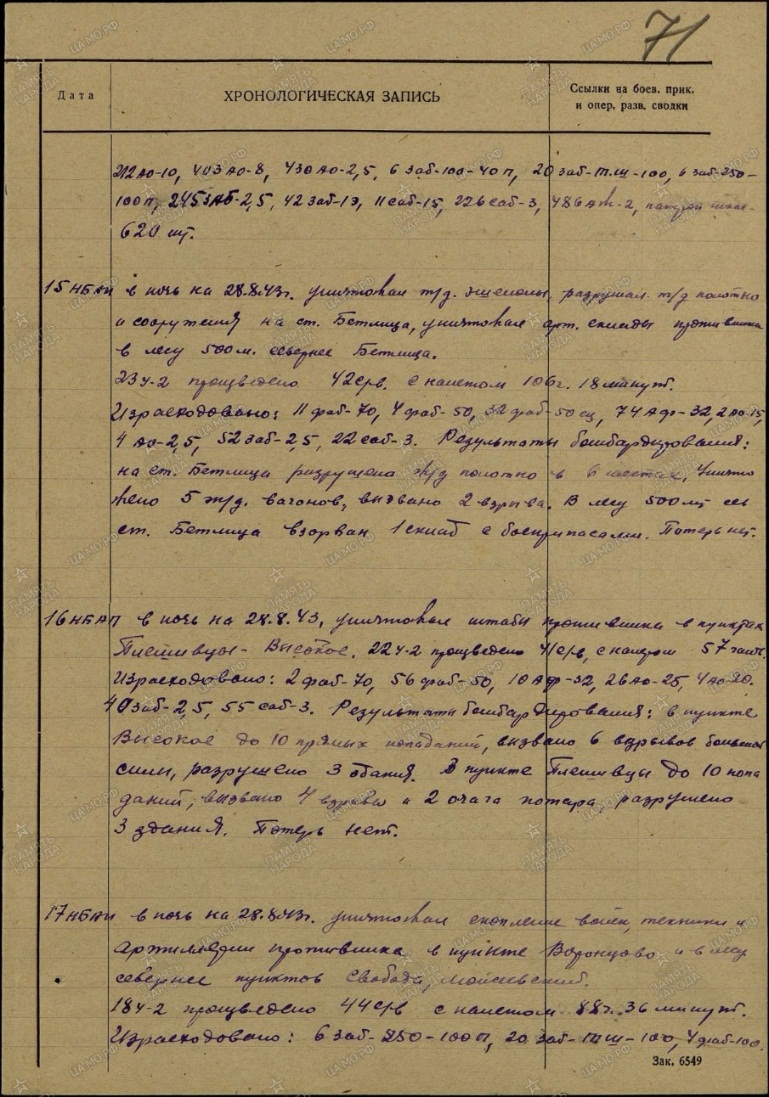 71
Дата
ХРОНОЛОГИЧЕСКАЯ ЗАПИСЬ
Ссылки на боев. прик.
и опер. разв. сводки
212 АО-10, 403 АО-8, 430 АО-2,5, 6 Заб-100-40п, 20 Заб-т.ш-100, 6 Заб-250-
100п, 245 ЗАБ-2,5, 42 Заб-1э, 11 Саб-15, 226 Саб-3, 486 Аж-2,
620 шт.
15 НБАП в ночь на 28.8.43г. уничтожал ж/д. эшелоны, разрушал ж/д полотно
и сооружения на ст. Бетлица, уничтожал арт. склады противника
в лесу 500 м. севернее Бетлица.
23 У-2 произведено 42 с/в. с налетом 106 г. 18 минут.
Израсходовано: 11 фаб-70, 4 фаб-50, 32 фаб-50 сц, 74 Аф-32, 2 Ао-15,
4 Ао-2,5, 52 Заб-2,5, 22 Саб-3. Результаты бомбардирования:
на ст. Бетлица разрушено ж/д полотно в 6 местах, уничто
жено 5 ж/д. вагонов, вызвано 2 взрыва. В лесу 500 м сев
ст. Бетлица взорван 1 склад с боеприпасами. Потерь нет.
16 НБАП в ночь на 28.8.43, уничтожал штабы противника в пунктах
Плешивцы - Высокое. 22 У-2 произведено 41 с/в, с налетом 57 час.
Израсходовано: 2 фаб-70, 56 фаб-50, 10 Аф-32, 26 Ао-25, 4 Ао-20.
40 Заб-2,5, 55 Саб-3. Результаты бомбардирования: в пункте
Высокое до 10 прямых попаданий, вызвано 6 взрывов большой
силы, разрушено 3 здания. В пункте Плешивцы до 10 попа
даний, вызвано 4 взрыва и 2 очага пожара, разрушено
3 здания. Потерь нет.
17 НБАП в ночь на 28.8.43г. уничтожал скопление войск, техники и
артиллерии противника в пункте Воронцово и в лесу
севернее пунктов Свобода, Мойсеевский.
18 У-2 произведено 44 с/в с налетом 88 г. 36 минут.
Израсходовано: 6 Заб-250-100п, 20 Заб-тш-100, 4 фаб-100.
Зак. 6549